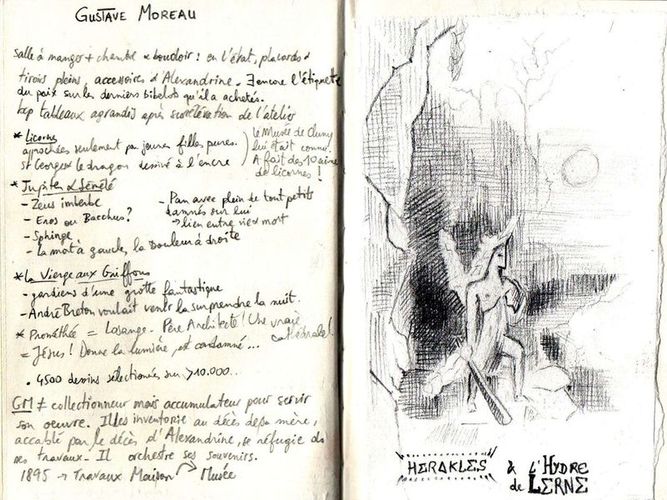 GUSTAVE MOREAU
Salle à manger + chambre & boudoir : en l'état, placards &
tiroirs pleins, accessoires d'Alexandrine. ∃ encore l'étiquette
du prix sur les derniers bibelots qu'il a achetés.
bcp tableaux agrandis après surélévation de l'atelier
* Licorne
approchées seulement par jeunes filles pures.
St Georges & le dragon dessiné à l'encre
le Musée de Cluny
lui était connu.
A fait des 10aines
de licornes !
* Jupiter & Sémélé
- Zeus imberbe
- Eros ou Bacchus ?
- Sphinge
- La mort à gauche, la Douleur à droite
- Pan avec plein de tout petits
damnés sur lui
→ lien entre vie & mort
* La Vierge aux Griffons
- gardiens d'une grotte fantastique
- André Breton voulait venir la surprendre la nuit.
* Prométhée = Losange. Père Architecte ! Une vraie
cathédrale !
= Jésus ! Donne la lumière, est condamné...
. 4500 dessins sélectionnés sur >10.000...
GM ≠ collectionneur mais accumulateur pour servir
son oeuvre. Il les inventorie au décès de sa mère,
accablé par le décès d'Alexandrine, se réfugie ds
ses travaux. Il orchestre ses souvenirs.
1895 → Travaux Maison → Musée
HERAKLES & L'HYDRE
de LERNE